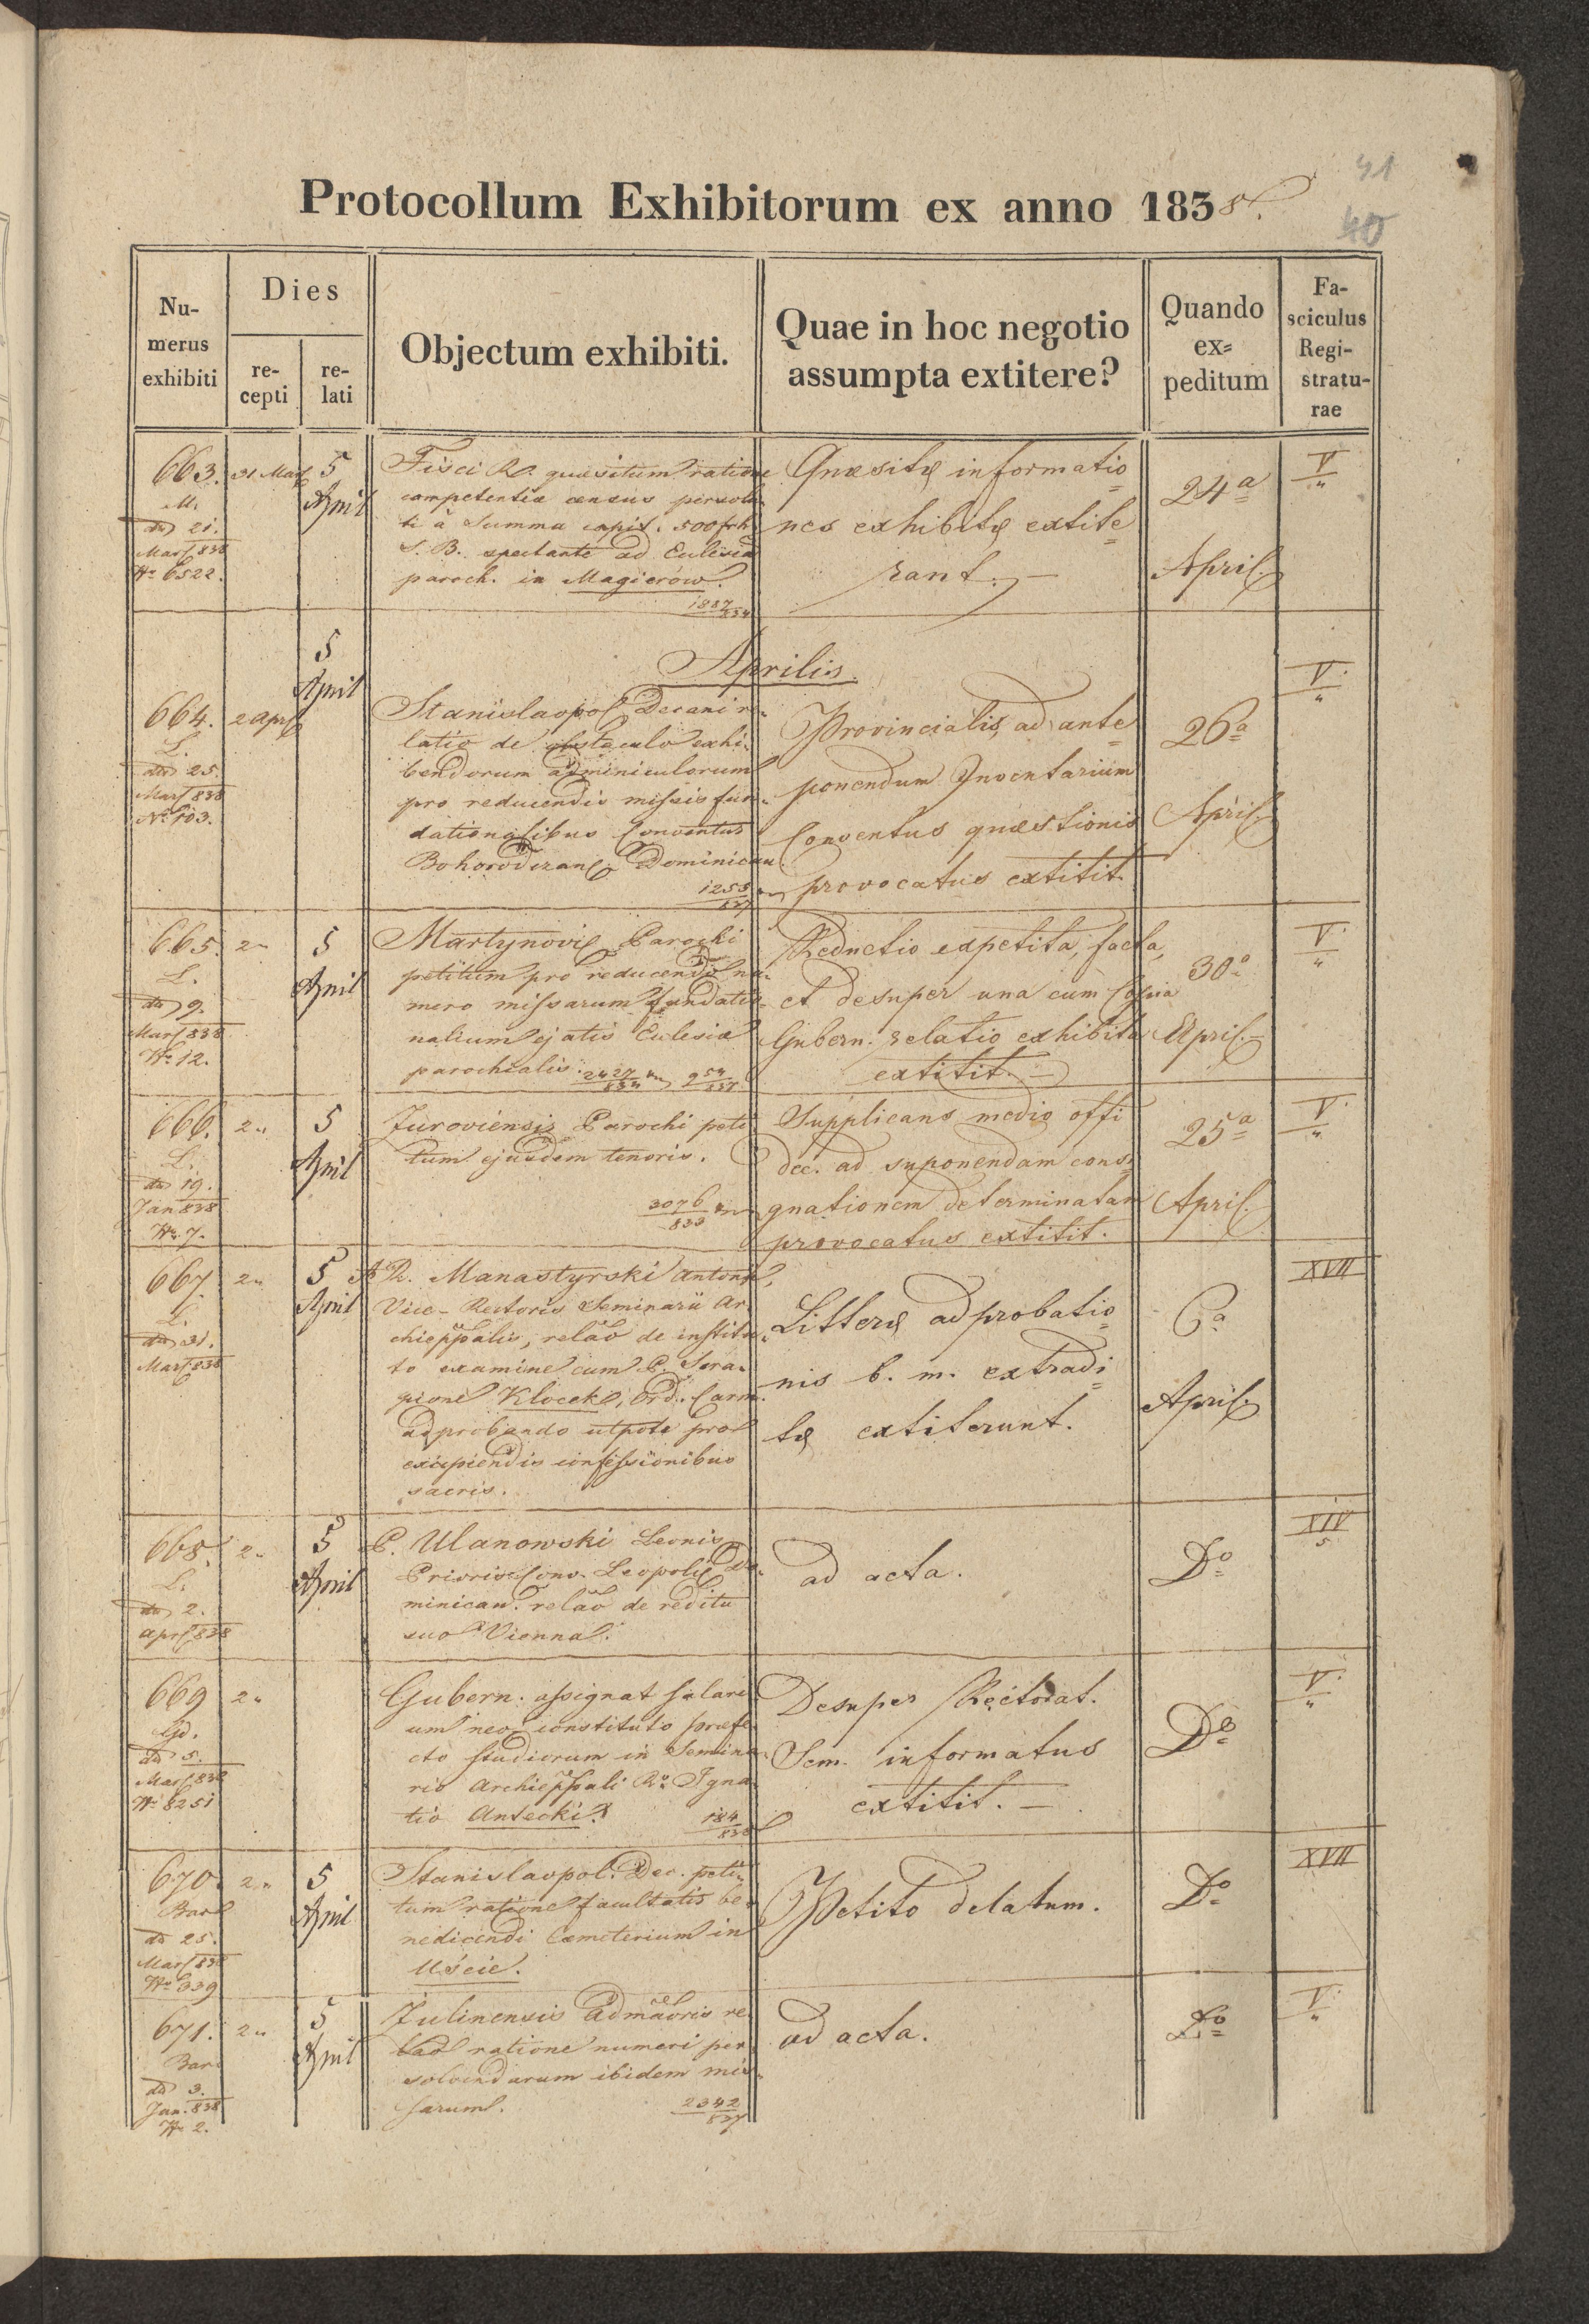 41
Protocollum Exhibitorum ex anno 1838.
40
Nu-
merus
exhibiti
Dies
re-
cepti
re-
lati
Objectum exhibiti.
Quae in hoc negotio
assumpta extitere?
Quando
ex=
peditum
Fa-
sciculus
Regi-
stratu-
rae
663.
M.
dto 21.
Mart 838
Nr 6522.
31 Mart
5
April
Fisci R. quæsitum ratione
competentiæ census persolu-
ti à Summa capit. 500 frh
S. B. spectante ad Eclesiā
paroch. in Magierów.
1887/834
Quæsitę informatio=
nes exhibitę extite=
rant.
24a
April.
V
Aprilis.
664.
L.
dto 25.
Mart 838
Nr 103.
2 April
5
April
Stanislaopol Decani re-
latio de obstaculo exhi-
bendorum adminiculorum
pro reducendis missis fun-
dationalibus Conventus
Bohorodczan. Dominican.
1253/837
Provincialis ad ante=
ponendum Inventarium
Conventus quæstionis
provocatus extitit.
26a
April.
V.
665.
L.
dto 9.
Mart 838
Nr 12.
2 "
5
April
Martynovię Parochi
petitum pro reducendo nu-
mero missarum fundatio-
nalium ejatis Eclesiæ
parochialis. 2427/834 954/837
Reductio expetita, facta,
et desuper una cum Copia
Gubern. relatio exhibita
extitit.
30a
April.
V.
666.
L.
dto 19.
Jan 838
Nr 7.
2 "
5
April
Juroviensis Parochi peti-
tum ejusdem tenoris.
3076/833
Supplicans medio offi
Dec. ad suponendam consi=
gnationem determinatam
provocatus extitit.
25a
April.
V.
667.
L.
dto 31.
Mart 838
2 "
5
April
A R. Manastyrski Antonii,
Vice-Rectoris Seminarii Ar-
chieppalis, relāo de institu-
to examine cum P. Sera-
pione Klocek, Ord. Carm.
adprobando utpote pro
excipiendis confessionibus
sacris.
Litterę adprobatio=
nis b. m. extradi=
tę extiterunt.
6a
April.
XVII
668.
L.
dto 2.
April 838
2 "
5
April
P. Ulanowski Leonis
Prioris Conv. Leopolię Do-
minican. relāo de reditu
suo Vienna.
ad acta.
Do
XIV
5
669
Gd.
dto 5.
Mart 838
Nr 8251
2 "
Gubern. assignat salari-
um neo-constituto præfe-
cto studiorum in Semina-
rio Archieppali Ro Igna-
tio Antecki.
184/838
Desuper Rectorat.
Sem. informatus
extitit.
Do
V.
670.
Bar
dto 25.
Mart 838
Nr 339
2 "
5
April
Stanislaopol. Dec. peti-
tum ratione facultatis be-
nedicendi Cœmeterium in
Uście.
Petito delatum.
Do
XVII
671.
Bar
dto 3.
Jan. 838
Nr 2.
2 "
5
April
Julinensis Admāoris re-
lāo ratione numeri per-
solvendarum ibidem mis-
sarum.
2342/837
ad acta.
Do
V.